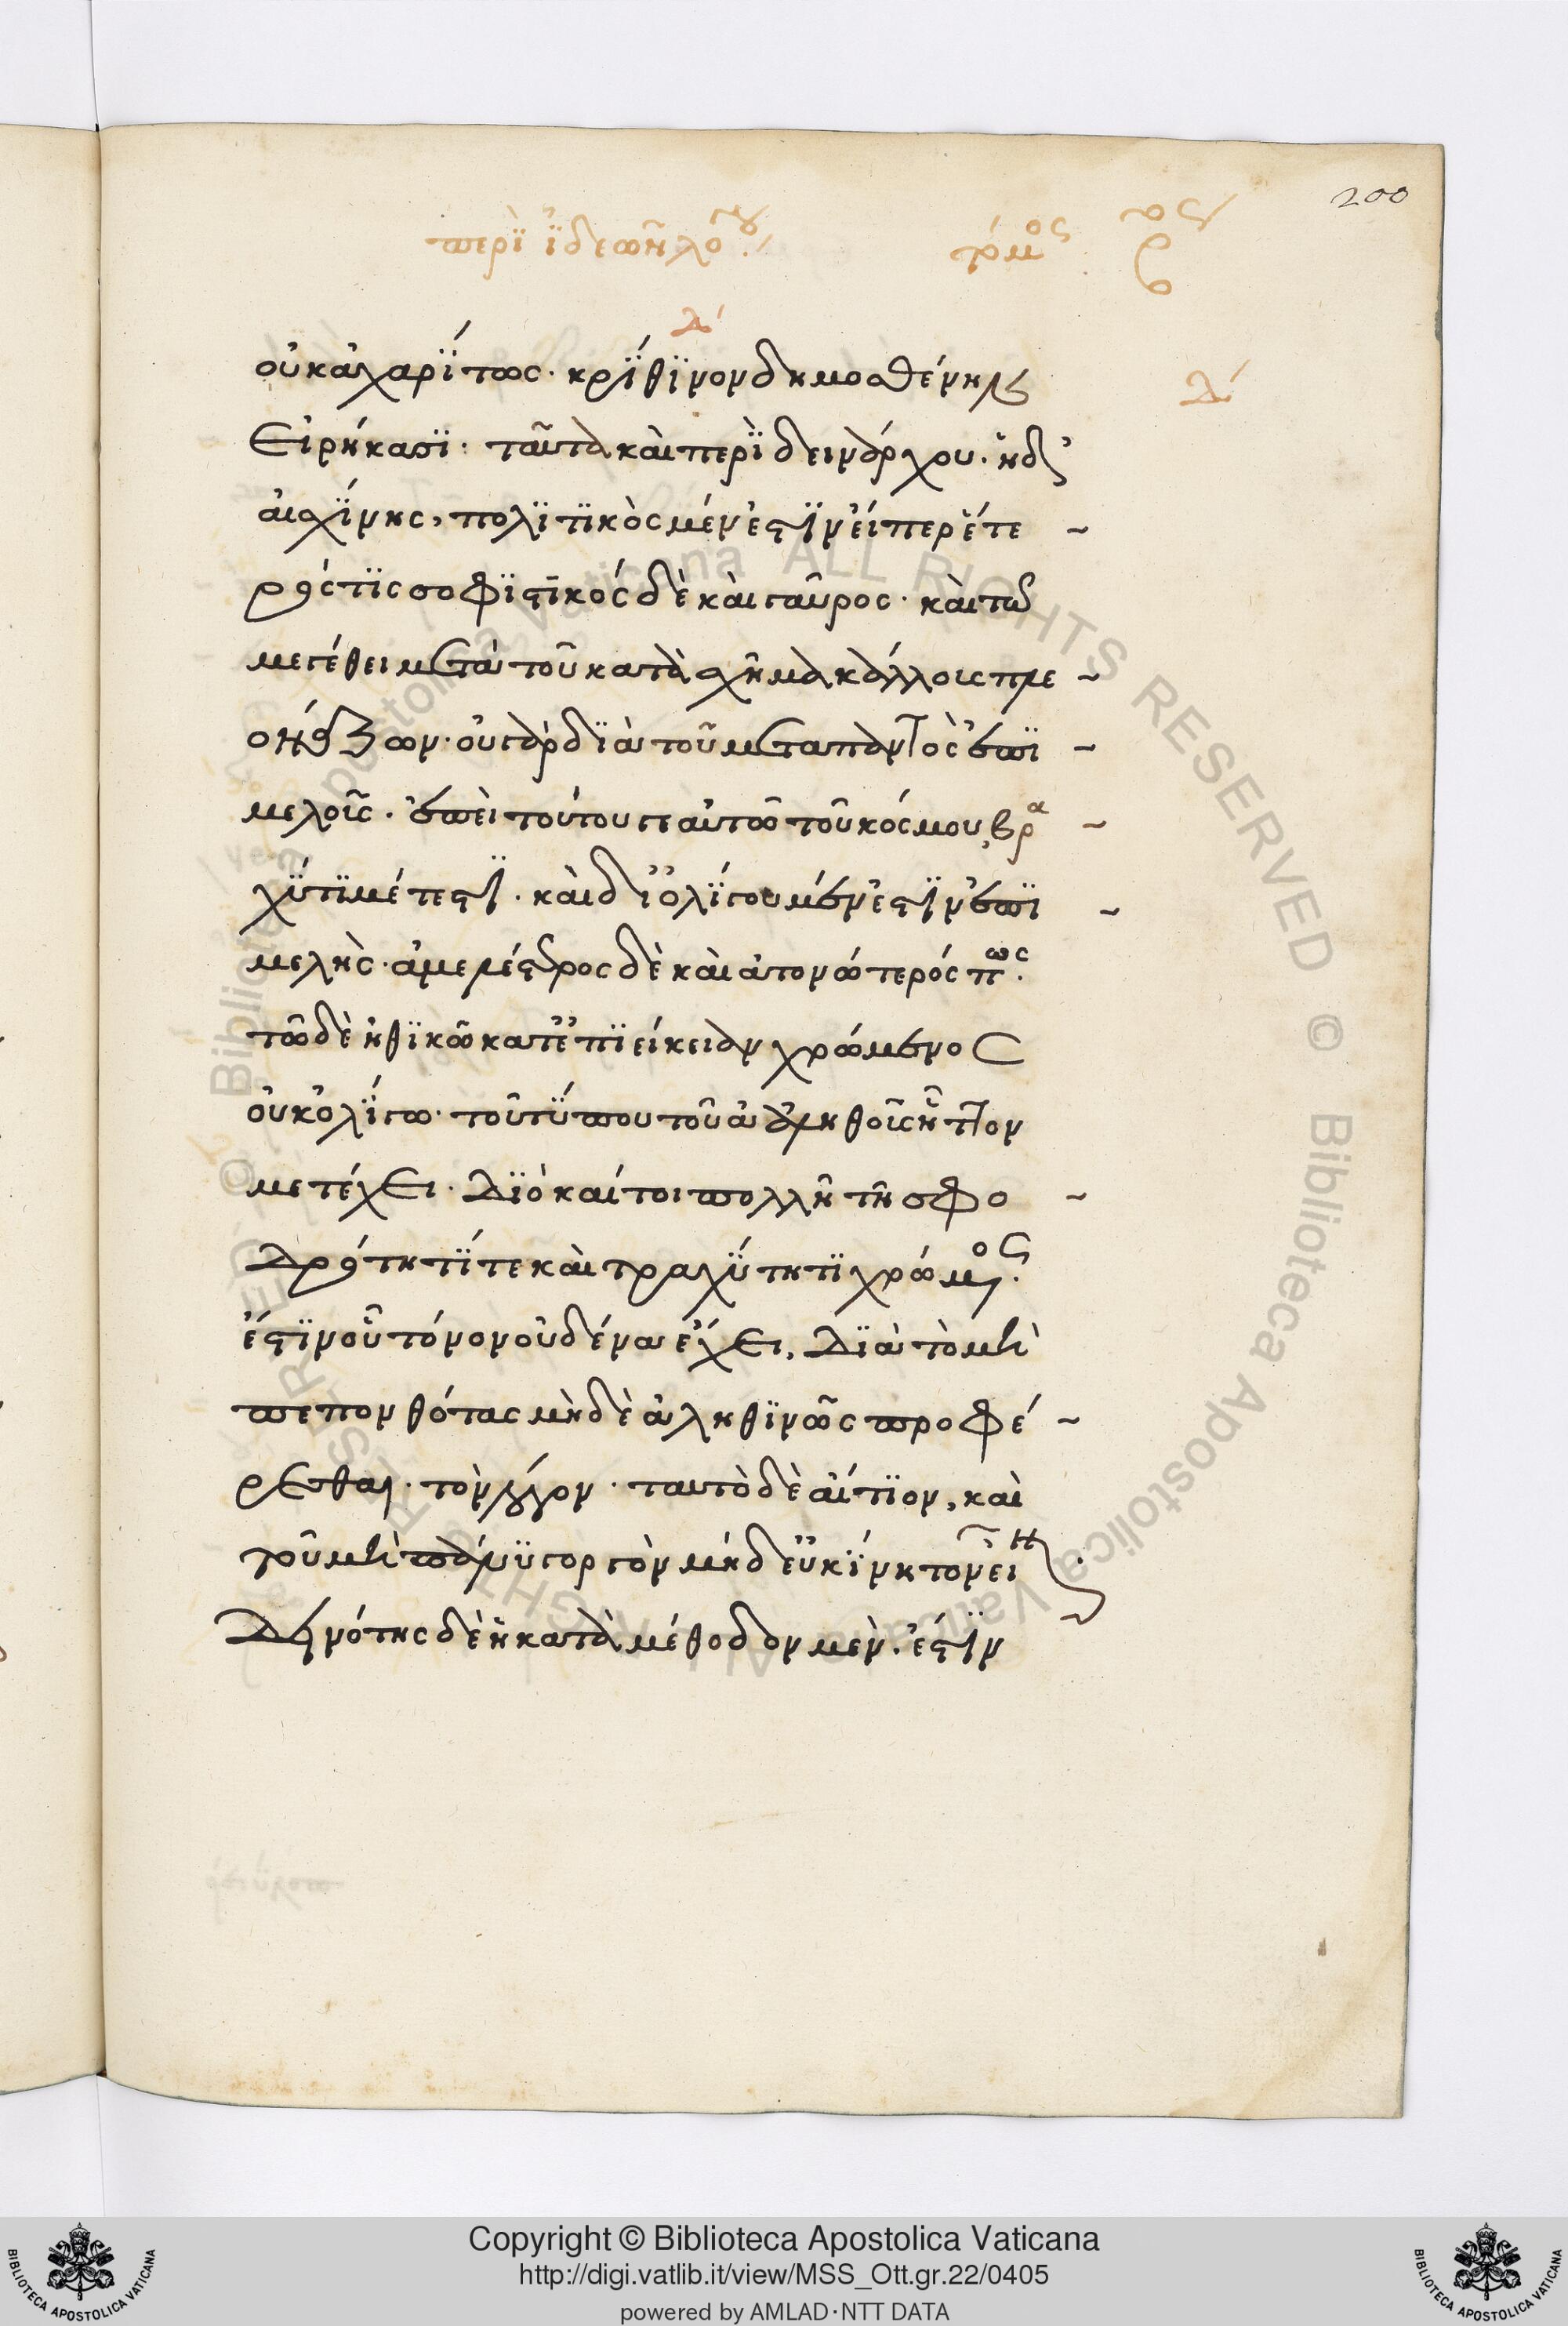 200
περὶ ἰδεῶν λό(γου)
τόμος
δ΄
οὐκ ἀχαρίτως· κρίθινον δημοσθένην
δ΄
εἰρήκασι· ταῦτα καὶ περὶ δεινάρχου· ἠδ'
αἰσχίνης, πολιτικὸς μέν ἐστιν εἴπερ ἕτε ~
ρός τις σοφιστικός δὲ καὶ γαῦρος· καὶ τῶ
μεγέθει μετὰ τοῦ κατὰ σχῆμα κάλλους πλε ~
ονάζων· οὐ γὰρ διὰ τοῦ μετὰ παντὸς ἐπι ~
μελοῦς· ἐπεὶ τούτου γε αὐτῶ τοῦ κόσμου, βρα ~
χύ τι μέτεστι· καὶ δι' ὀλίγου μέν ἐστιν ἐπι ~
μελὴς· ἀμελέστερος δὲ καὶ ἀτονώτερός πως·
τῶ δὲ ἠθικῶ κατ' ἐπιείκειαν χρώμενος
οὐκ ὀλίγω· τοῦ τύπου τοῦ ἀληθοῦς ἧττον
μετέχει· διὸ καίτοι πολλῆ τῆ σφο ~
δρότητί τε καὶ τραχύτητι χρώμενος·
ἔστιν οὗ τόνον οὐδένα ἔχει, διὰ τὸ μὴ
πεπονθότας μηδὲ ἀληθινῶς προφέ ~
ρεσθαι· τὸν λόγον· ταυτὸ δὲ αἴτιον, καὶ
τοῦ μὴ πάνυ γοργὸν μηδ' εὐκίνητον εἶναι·
δεινότης δὲ ἡ κατὰ μέθοδον μὲν· ἔστιν
Copyright © Biblioteca Apostolica Vaticana
http://digi.vatlib.it/view/MSS_Ott.gr.22/0405
powered by AMLAD·NTT DATA
BIBLIOTECA APOSTOLICA VATICANA
BIBLIOTECA APOSTOLICA VATICANA